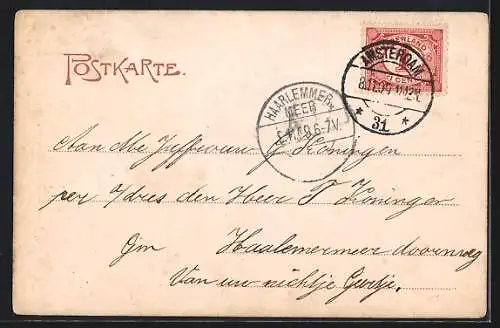 POSTKARTE.
NEDERLAND
AMSTERDAM
31
HAARLEMMER
MEER
Aan Me Juffrouw G Koningen
per Adres den Heer J Koninger
Haalemermeer doornweg
Van uw nichtje Geertje.